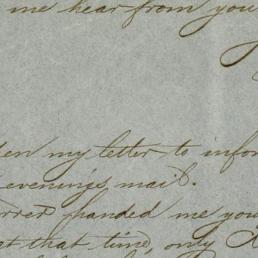 me hear from you
my letter to infor
evenings mail.
handed me you
that time, only